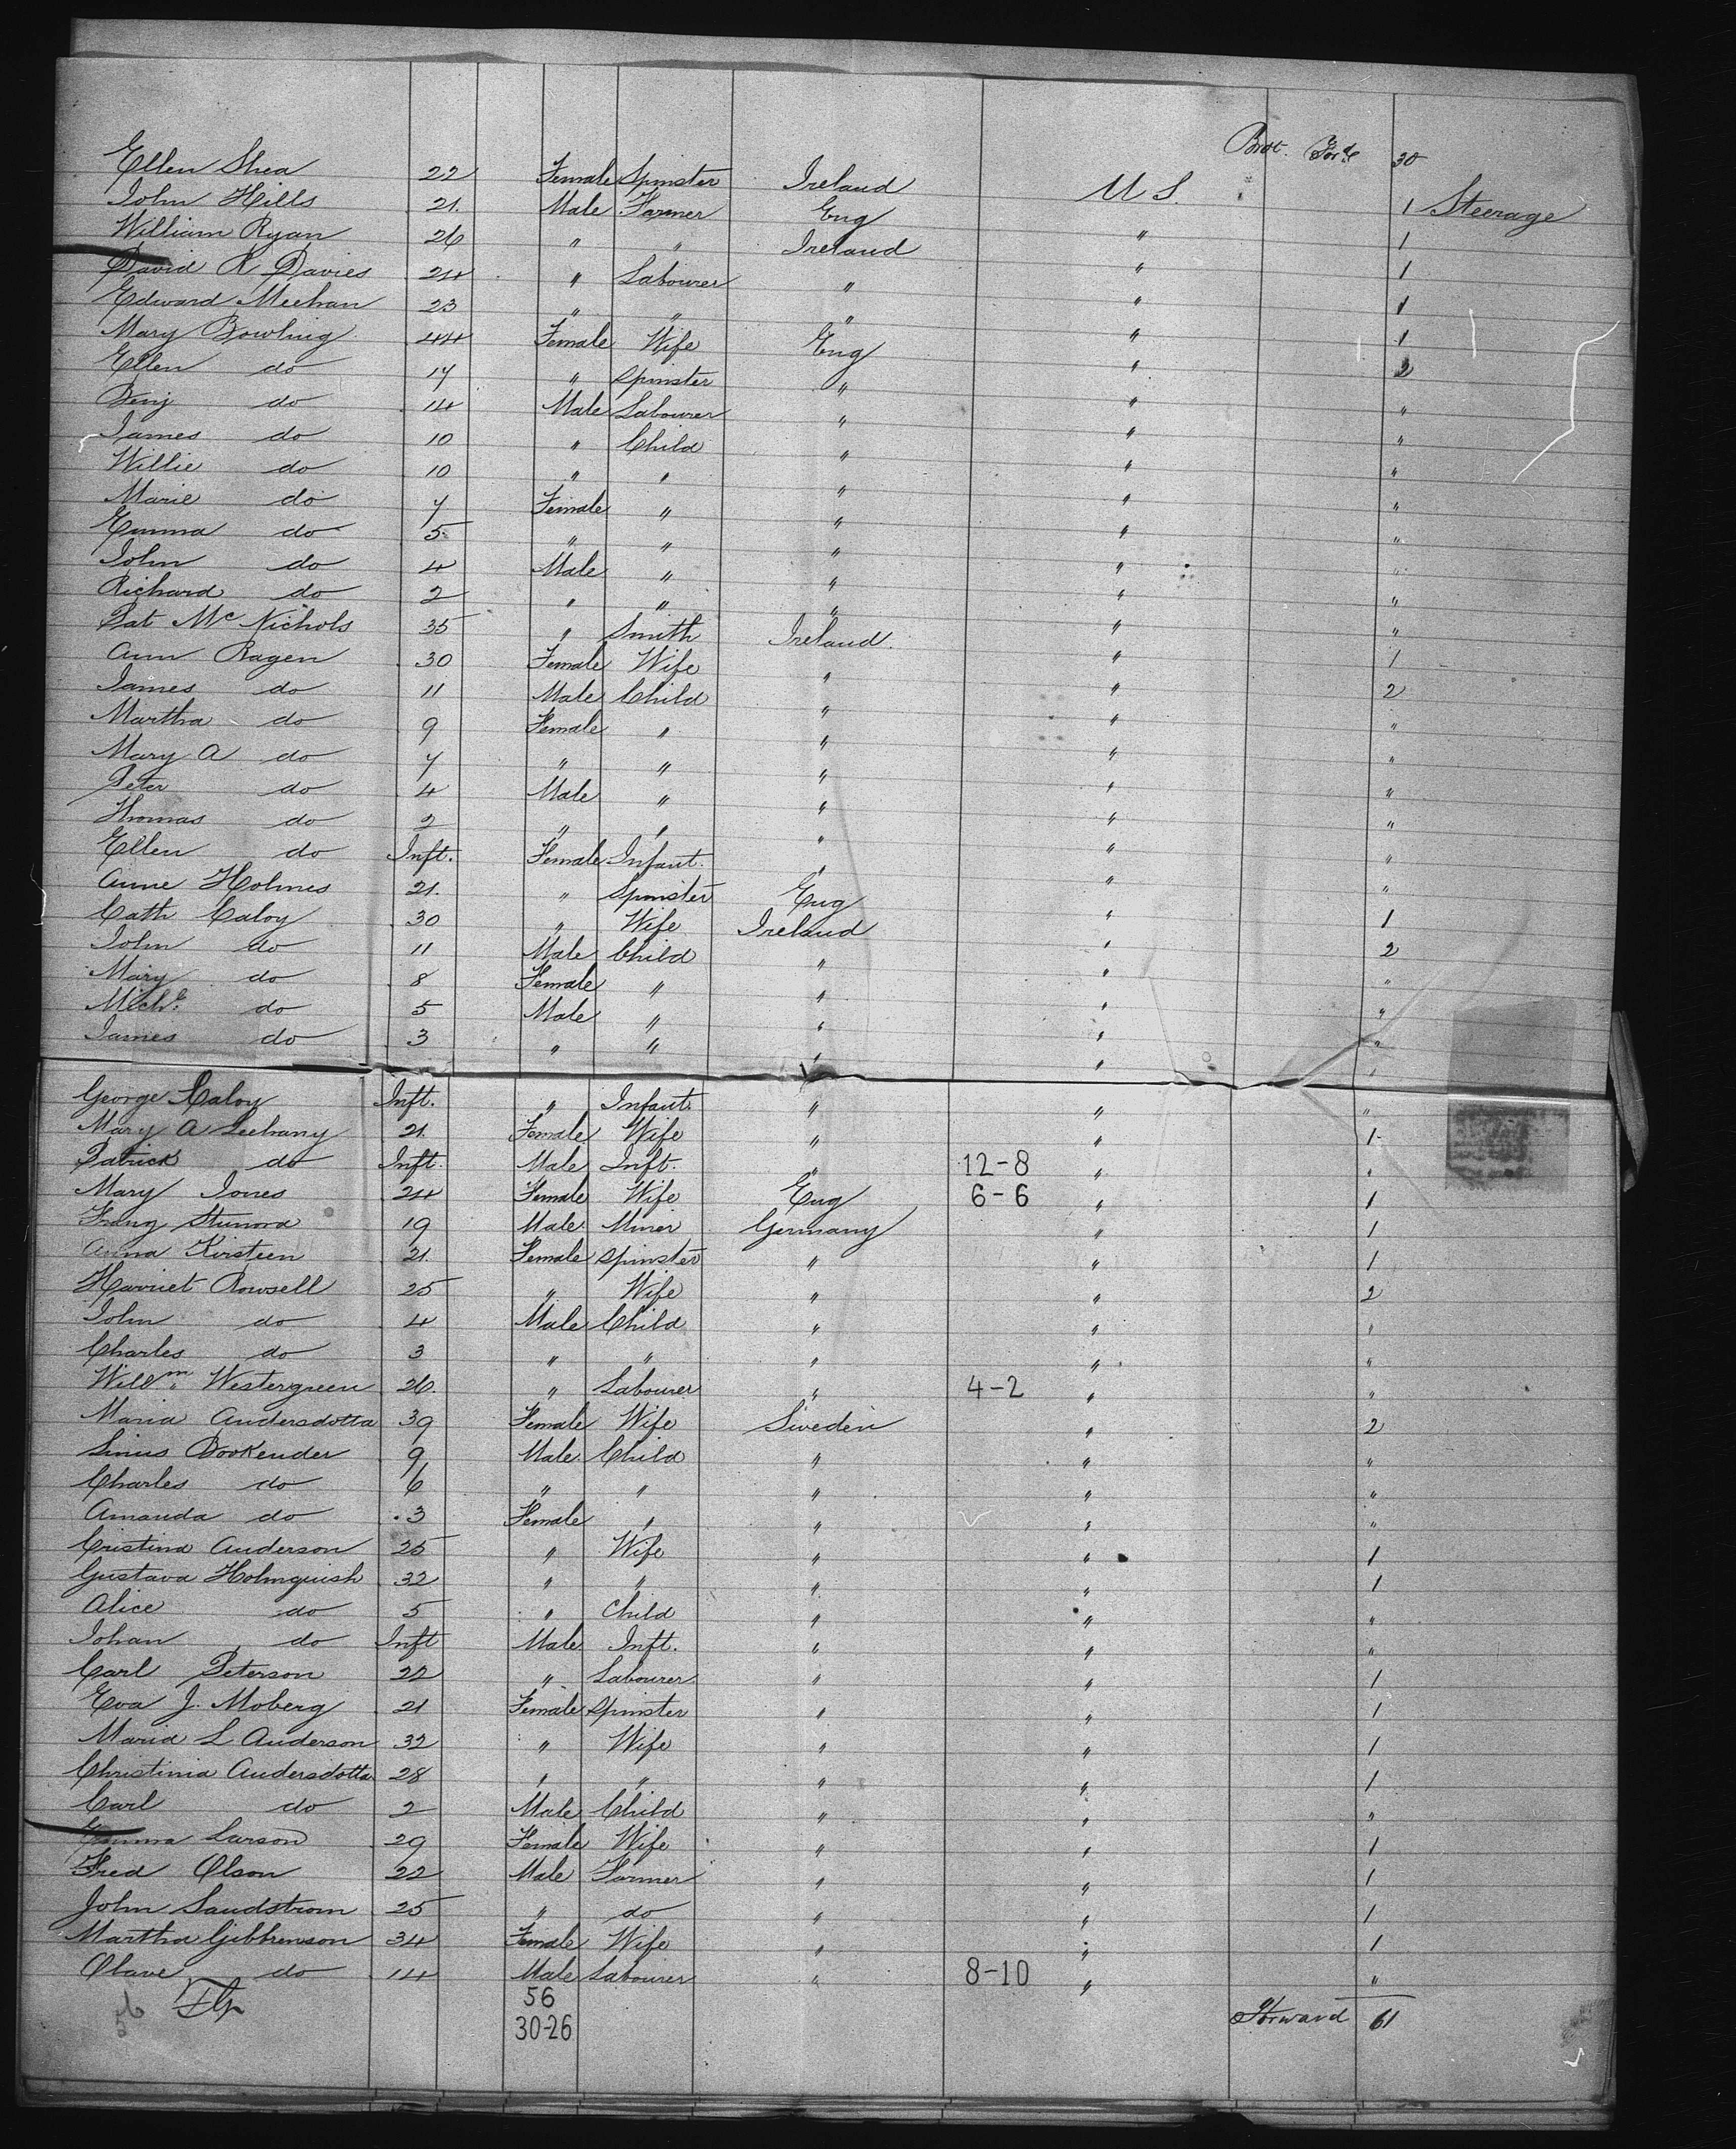 Brot. Ford 30
Ellen Shea 22 Female Spinster Ireland U S. 1 Steerage
John Hills 21. Male Farmer Eng " 1
William Ryan 26 " " Ireland " 1
David R Davies 24 " Labourer " " 1
Edward Meehan 23 " " " " 1
Mary Bowling 44 Female Wife Eng " 2
Ellen do 17 " Spinster " " "
Benj do 14 Male Labourer " " "
James do 10 " Child " " "
Willie do 10 " " " " "
Marie do 7 Female " " " "
Emma do 5 " " " " "
John do 4 Male " " " "
Richard do 2 " " " " "
Pat Mc Nichols 35 " Smith Ireland. " 1
Ann Ragen 30 Female Wife " " 2
James do 11 Male Child " " "
Martha do 9 Female " " " "
Mary A do 7 " " " " "
Peter do 4 Male " " " "
Thomas do 2 " " " " "
Ellen do Inft. Female Infant. " " "
Anne Holmes 21. " Spinster Eng " 1
Cath Caloy 30 " Wife Ireland " 2
John do 11 Male Child " " "
Mary do 8 Female " " " "
Michl. do 5 Male " " " "
James do 3 " " " " "
George Caloy Inft. " Infant. " " "
Mary A Leehany 21. Female Wife " " 1
Patrick do Inft. Male Inft. " 12-8 " "
Mary Jones 24 Female Wife Eng 6-6 " 1
Franz 19 Male Miner Germany " 1
Anna Kirsteen 21. Female Spinster " " 1
Harriet Rowsell 25 " Wife " " 2
John do 4 Male Child " " "
Charles do 3 " " " " "
Willm. Westergreen 26. " Labourer " 4-2 " "
Maria Andersdotta 39 Female Wife Sweden " 2
Bookender 9 Male Child " " "
Charles do 6 " " " " "
Amanda do 3 Female " " " "
Cristina Anderson 25 " Wife " " 1
Gustava Holmquish 32 " " " " 1
Alice do 5 " Child " " "
Johan do Inft Male Inft. " " "
Carl Peterson 22 " Labourer " " 1
Eva J. Moberg 21 Female Spinster " " 1
Maria L Anderson 32 " Wife " " 1
Christinia Andersdotta 28 " " " " 1
Carl do 2 Male Child " " "
Emma Larson 29 Female Wife " " 1
Fred Olson 22 Male Farmer " " 1
John Sandstrom 25 " do " " 1
Martha Gibbrenson 34 Female Wife " " 1
Olave do 14 Male Labourer " 8-10 " "
56 56 Forward 61
30-26